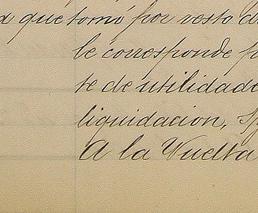 que tomó por resto d
le corresponde p
te de utilidade
liquidacion, Sp
A la Vuelta